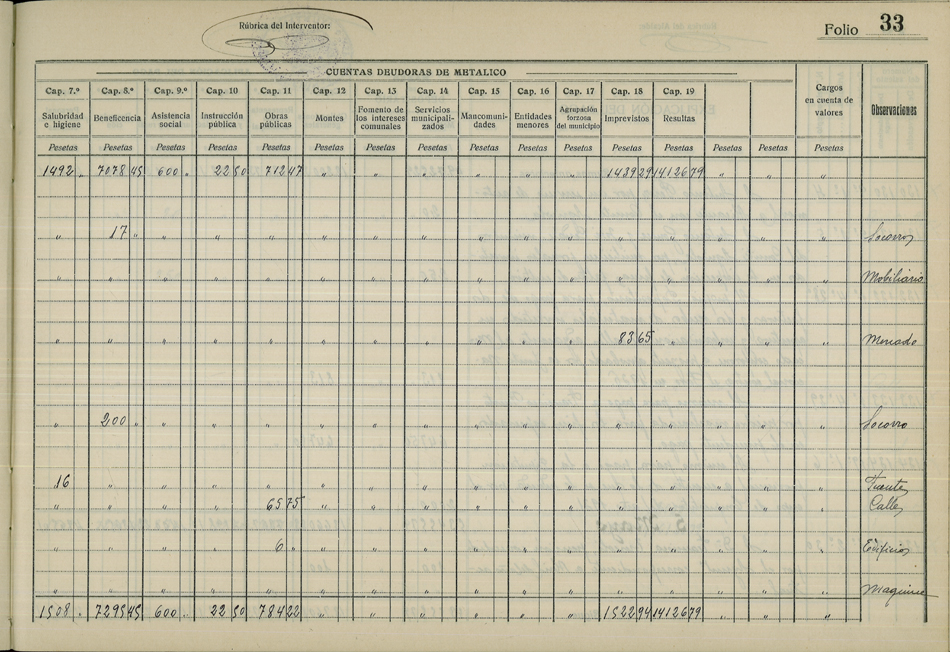 Rúbrica del Interventor:
Folio 33
CUENTAS DEUDORAS DE METALICO
Cap. 7.º Cap. 8.º Cap. 9.º Cap. 10 Cap. 11 Cap. 12 Cap. 13 Cap. 14 Cap. 15 Cap. 16 Cap. 17 Cap. 18 Cap. 19
Salubridad e higiene Beneficencia Asistencia social Instrucción pública Obras públicas Montes Fomento de los intereses comunales Servicios municipalizados Mancomunidades Entidades menores Agrupación forzosa del municipio Imprevistos Resultas Cargos en cuenta de valores Observaciones
Pesetas Pesetas Pesetas Pesetas Pesetas Pesetas Pesetas Pesetas Pesetas Pesetas Pesetas Pesetas Pesetas Pesetas Pesetas Pesetas
1492 " 7078 45 600 " 22 50 712 47 " " " " " " 1439 29 1412 679 " " "
" 17 " " " " " " " " " " " " " " " Socorros
" " " " " " " " " " " " " " " " Mobiliario
" " " " " " " " " " " 83 65 " " " " Mercado
" 200 " " " " " " " " " " " " " " " Socorro
16 " " " " " " " " " " " " " " " Fuente
" " " " 65 75 " " " " " " " " " " " Calles
" " " " 6 " " " " " " " " " " " " Edificios
" " " " " " " " " " " " " " " "
1508 " 7295 45 600 " 22 50 784 22 " " " " " " 1522 94 1412 679 " " "